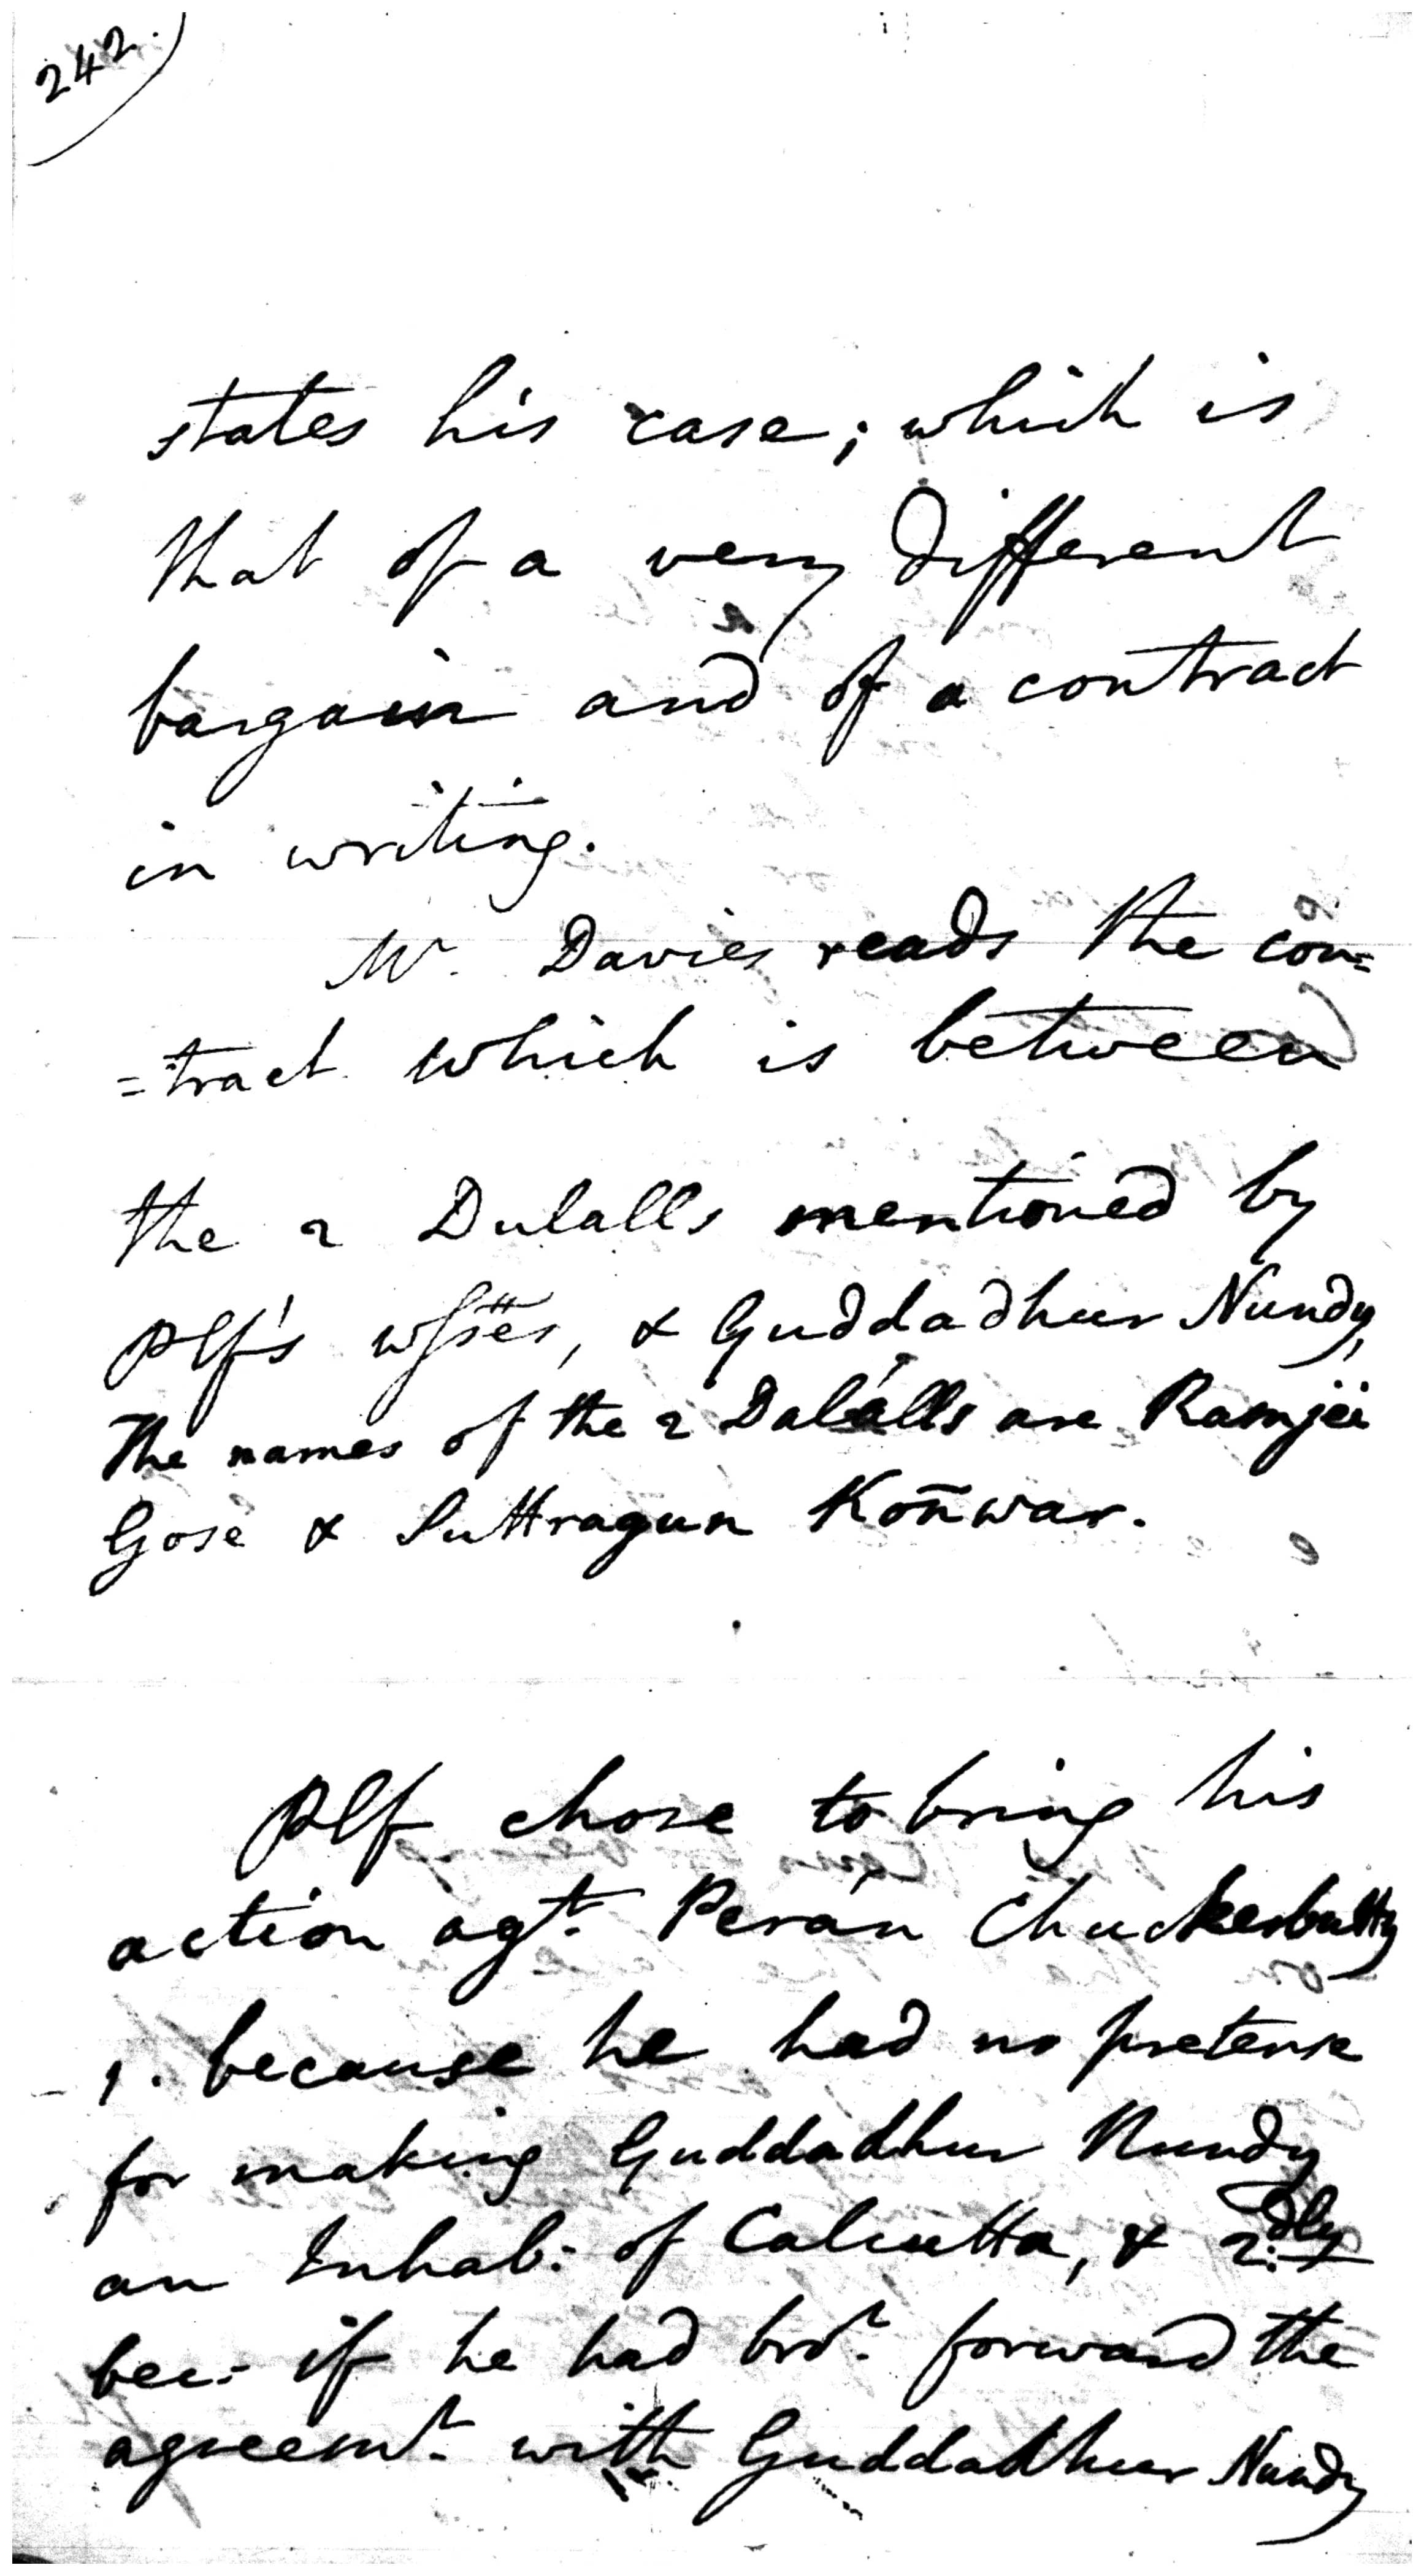 242.
states his case; which is
that of a very different
bargain and of a contract
in writing.
Mr. Davies reads the con=
=tract which is between
the 2 Dulalls mentioned by
Plf's wsses, & Guddadhur Nundy,
The names of the 2 Dalálls are Ramjee
Gose & Suttragun Kon̄war.
Plf chose to bring his
action agt. Perán Chuckerbutty
1. because he had no pretense
for making Guddadhur Nundy
an Inhab: of Calcutta, & 2:dly
bec: if he had brot. forward the
agreemt. with Guddadhur Nundy